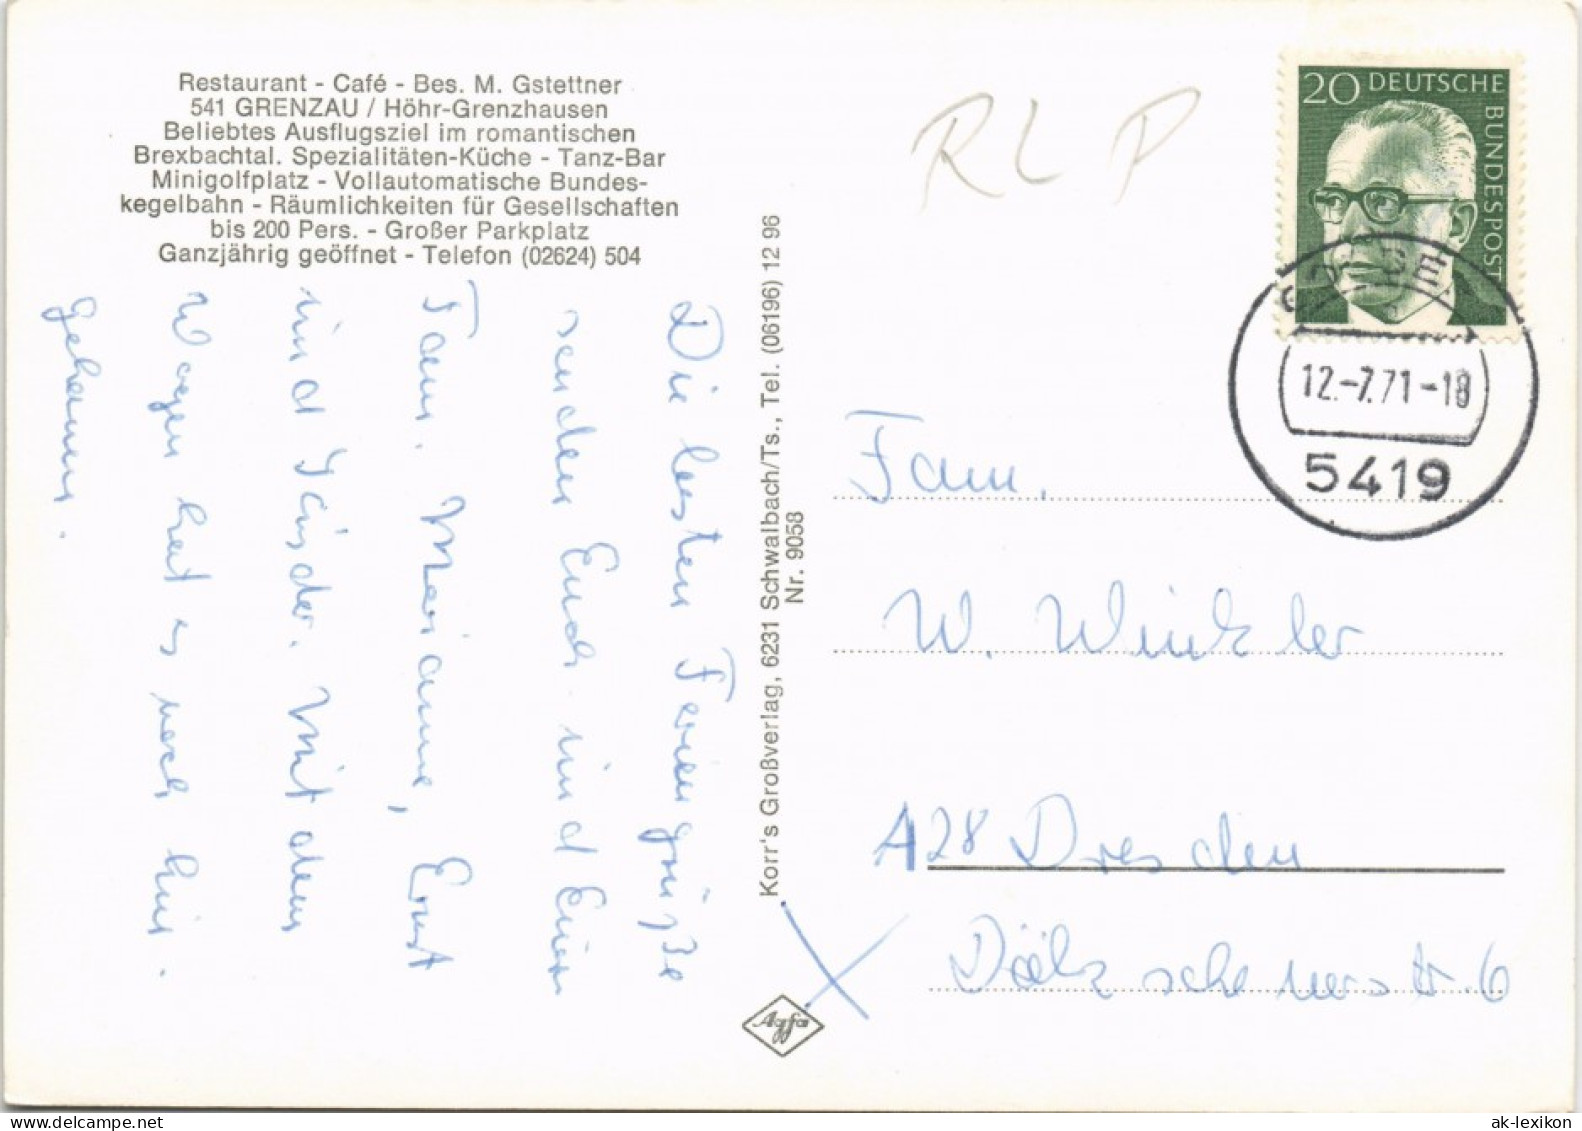 Restaurant - Café - Bes. M. Gstettner
541 GRENZAU / Höhr-Grenzhausen
Beliebtes Ausflugsziel im romantischen
Brexbachtal. Spezialitäten-Küche - Tanz-Bar
Minigolfplatz - Vollautomatische Bundes-
kegelbahn - Räumlichkeiten für Gesellschaften
bis 200 Pers. - Großer Parkplatz
Ganzjährig geöffnet - Telefon (02624) 504
Die besten Feriengrüße
senden Euch und Eurer
Fam. Marianne, Ernst
und Kinder. Mit dem
Wagen haut es noch hin.
Korr's Großverlag, 6231 Schwalbach/Ts., Tel. (06196) 12 96
Nr. 9058
RLP
20 DEUTSCHE
BUNDESPOST
12.-7.71-18
5419
Fam.
W. Winkler
A28 Dresden
Dölzschenerstr. 6
Agfa
delcampe.net
ak-lexikon